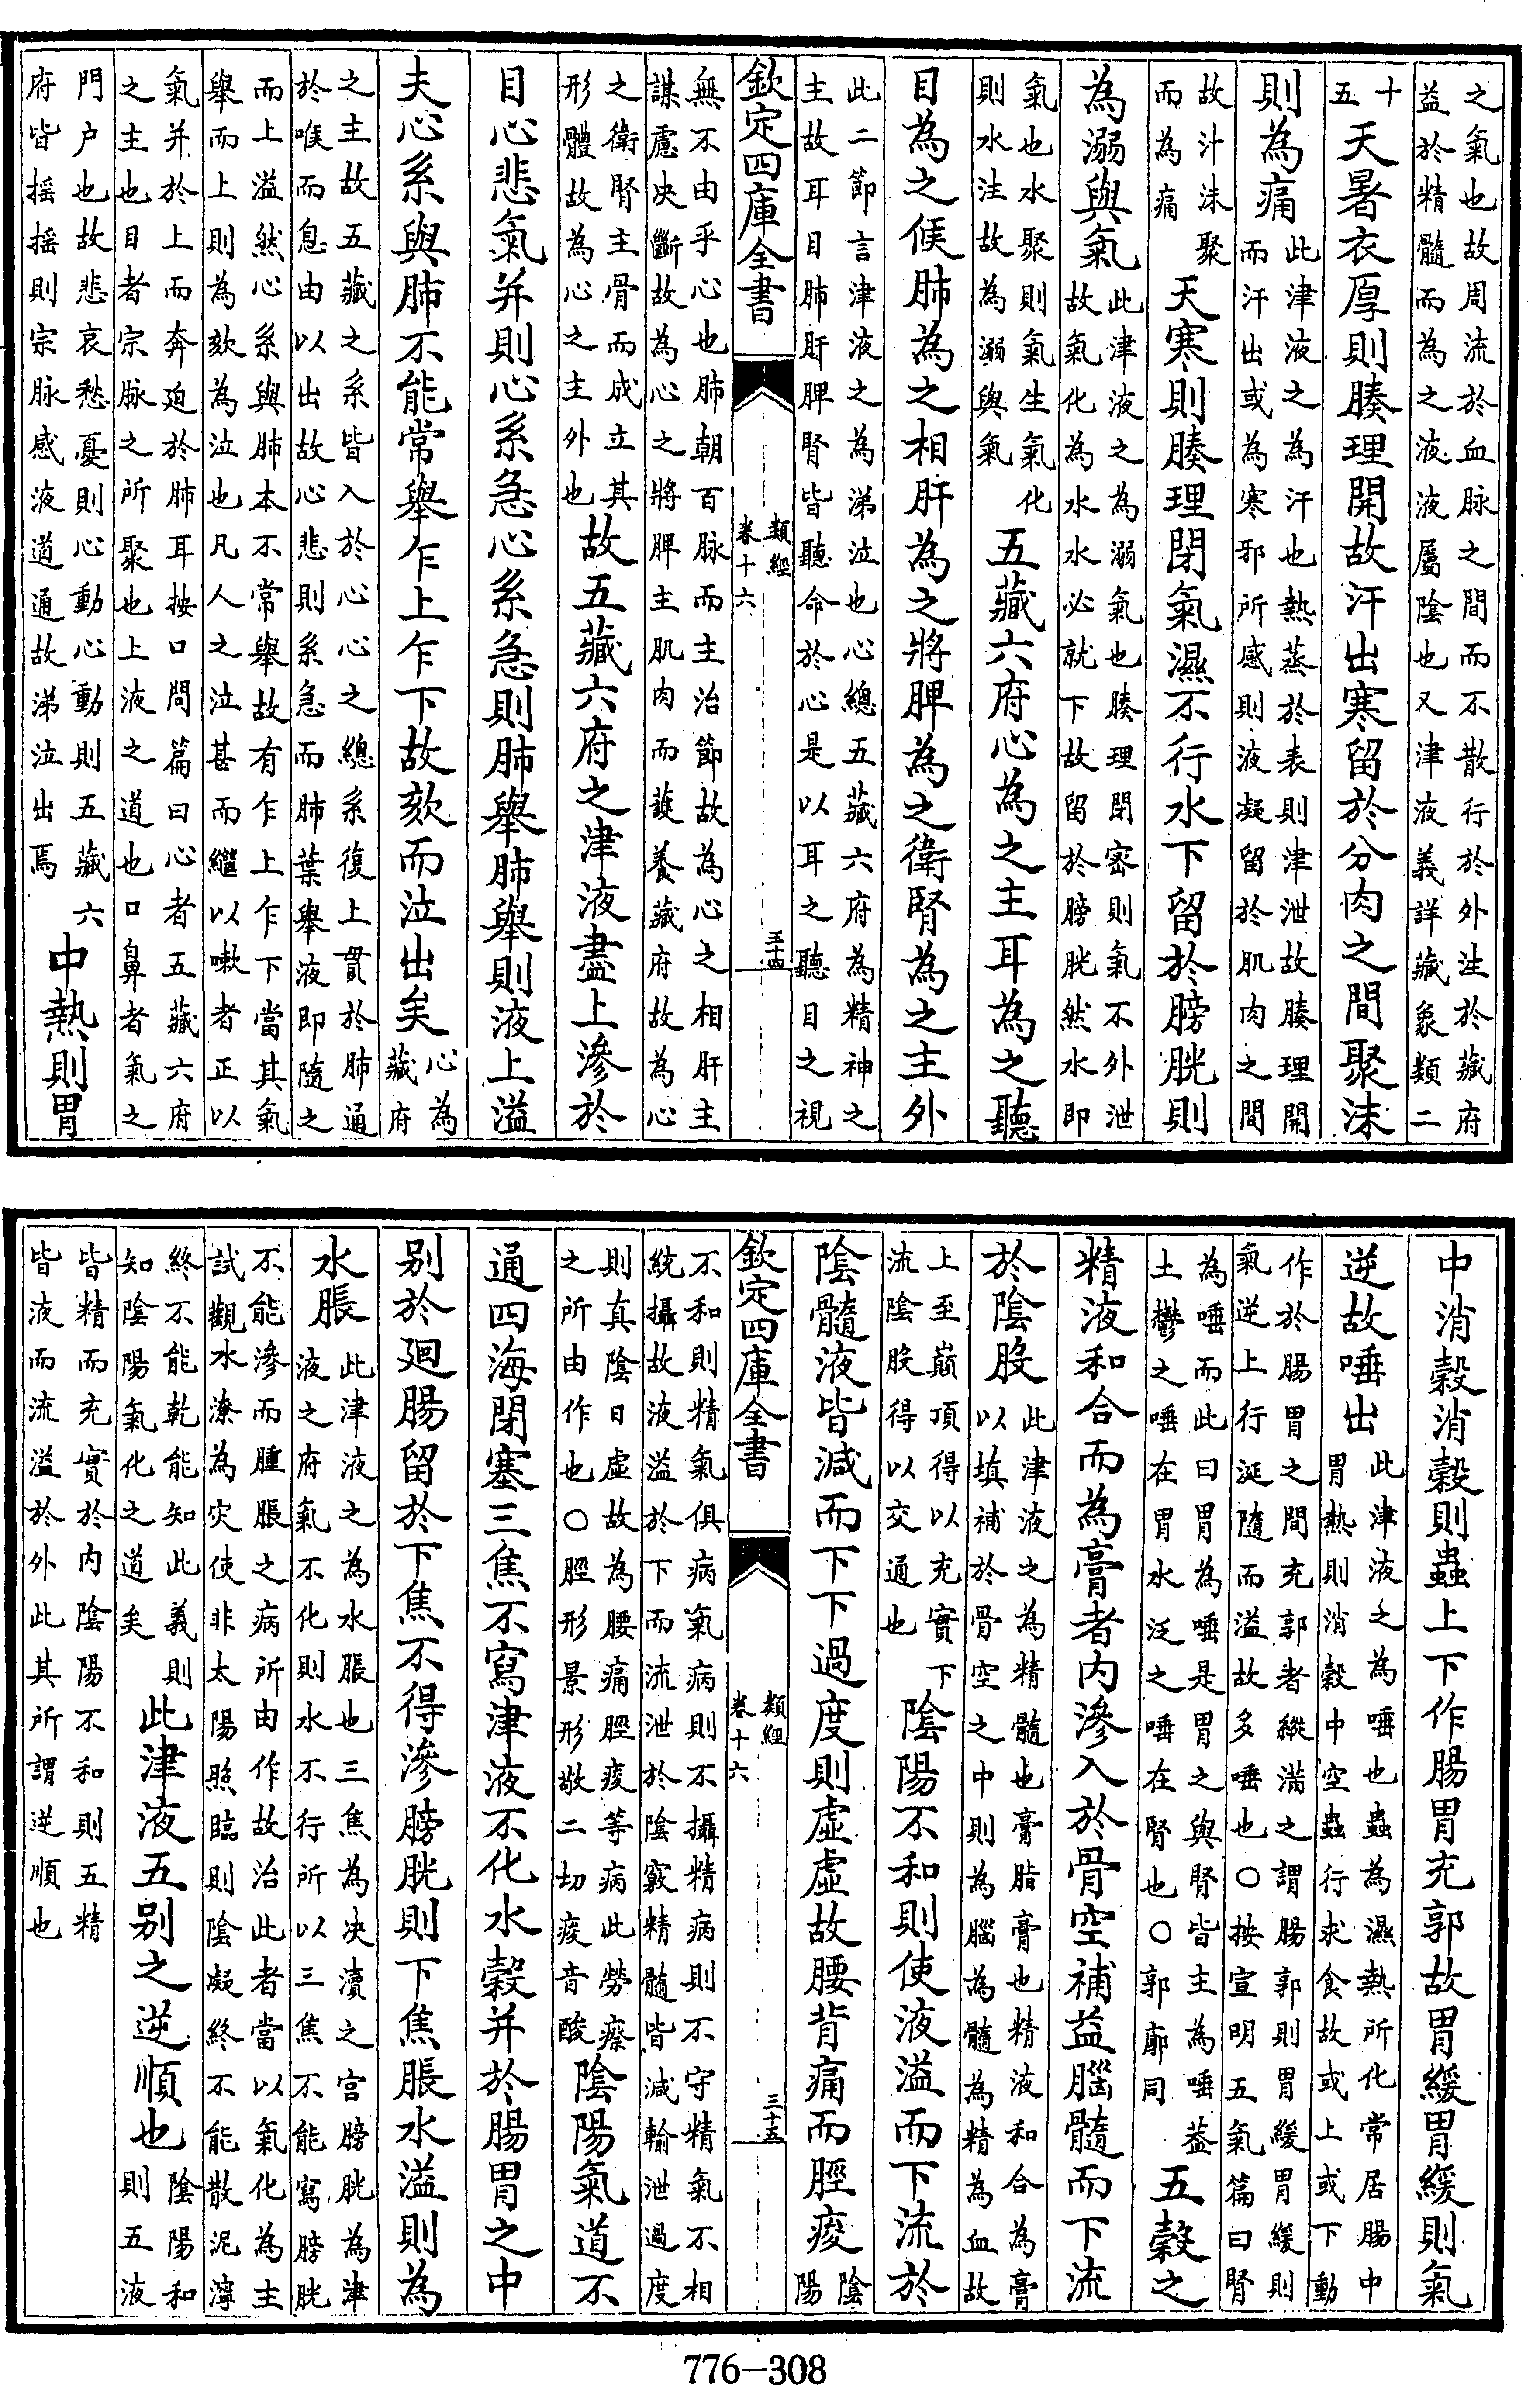 之氣也故周流於血脉之間而不散行於外注於藏府
益於精髓而為之液液屬陰也又津液義詳藏象類二
十五天暑衣厚則腠理開故汗出寒留於分肉之間聚沫
則為痛此津液之為汗也熱蒸於表則津泄故腠理開
而汗出或為寒邪所感則液凝留於肌肉之間
故汁沫聚
而為痛天寒則腠理閉氣濕不行水下留於膀胱則
為溺與氣此津液之為溺氣也腠理閉密則氣不外泄
故氣化為水水必就下故留於膀胱然水即
氣也水聚則氣生氣化
則水注故為溺與氣五藏六府心為之主耳為之聽
目為之候肺為之相肝為之將脾為之衛腎為之主外
此二節言津液之為涕泣也心總五藏六府為精神之
主故耳目肺肝脾腎皆聽命於心是以耳之聽目之視
欽定四庫全書
類經
卷十六
三十四
無不由乎心也肺朝百脉而主治節故為心之相肝主
謀慮决斷故為心之將脾主肌肉而䕶養藏府故為心
之衛腎主骨而成立其
形體故為心之主外也故五藏六府之津液盡上滲於
目心悲氣并則心系急心系急則肺舉肺舉則液上溢
夫心系與肺不能常舉乍上乍下故欬而泣出矣心為
藏府
之主故五藏之系皆入於心心之總系復上貫於肺通
於喉而息由以出故心悲則系急而肺葉舉液即隨之
而上溢然心系與肺本不常舉故有乍上乍下當其氣
舉而上則為欬為泣也凡人之泣甚而繼以嗽者正以
氣并於上而奔迫於肺耳按口問篇曰心者五藏六府
之主也目者宗脉之所聚也上液之道也口鼻者氣之
門户也故悲哀愁憂則心動心動則五藏六
府皆摇摇則宗脉感液道通故涕泣出焉中熱則胃
中消穀消穀則蟲上下作腸胃充郭故胃緩胃緩則氣
逆故唾出此津液之為唾也蟲為濕熱所化常居腸中
胃熱則消穀中空蟲行求食故或上或下動
作於腸胃之間充郭者縱滿之謂腸郭則胃緩胃緩則
氣逆上行涎隨而溢故多唾也○按宣明五氣篇曰腎
為唾而此曰胃為唾是胃之與腎皆主為唾葢
土鬱之唾在胃水泛之唾在腎也○郭廓同五穀之
精液和合而為膏者内滲入於骨空補益腦髓而下流
於陰股此津液之為精髓也膏脂膏也精液和合為膏
以填補於骨空之中則為腦為髓為精為血故
上至巔頂得以充實下
流陰股得以交通也陰陽不和則使液溢而下流於
陰髓液皆減而下下過度則虛虛故腰背痛而脛痠陰
陽
不和則精氣俱病氣病則不攝精病則不守精氣不相
統攝故液溢於下而流泄於陰竅精髓皆減輸泄過度
則真陰日虛故為腰痛脛痠等病此勞瘵
之所由作也○脛形景形敬二切痠音酸陰陽氣道不
欽定四庫全書
類經
卷十六
三十五
通四海閉塞三焦不寫津液不化水穀并於腸胃之中
别於廻腸留於下焦不得滲膀胱則下焦脹水溢則為
水脹此津液之為水脹也三焦為决瀆之官膀胱為津
液之府氣不化則水不行所以三焦不能寫膀胱
不能滲而腫脹之病所由作故治此者當以氣化為主
試觀水潦為灾使非太陽照臨則陰凝終不能散泥濘
終不能乾能知此義則
知陰陽氣化之道矣此津液五别之逆順也陰陽和
則五液
皆精而充實於内陰陽不和則五精
皆液而流溢於外此其所謂逆順也
776-308